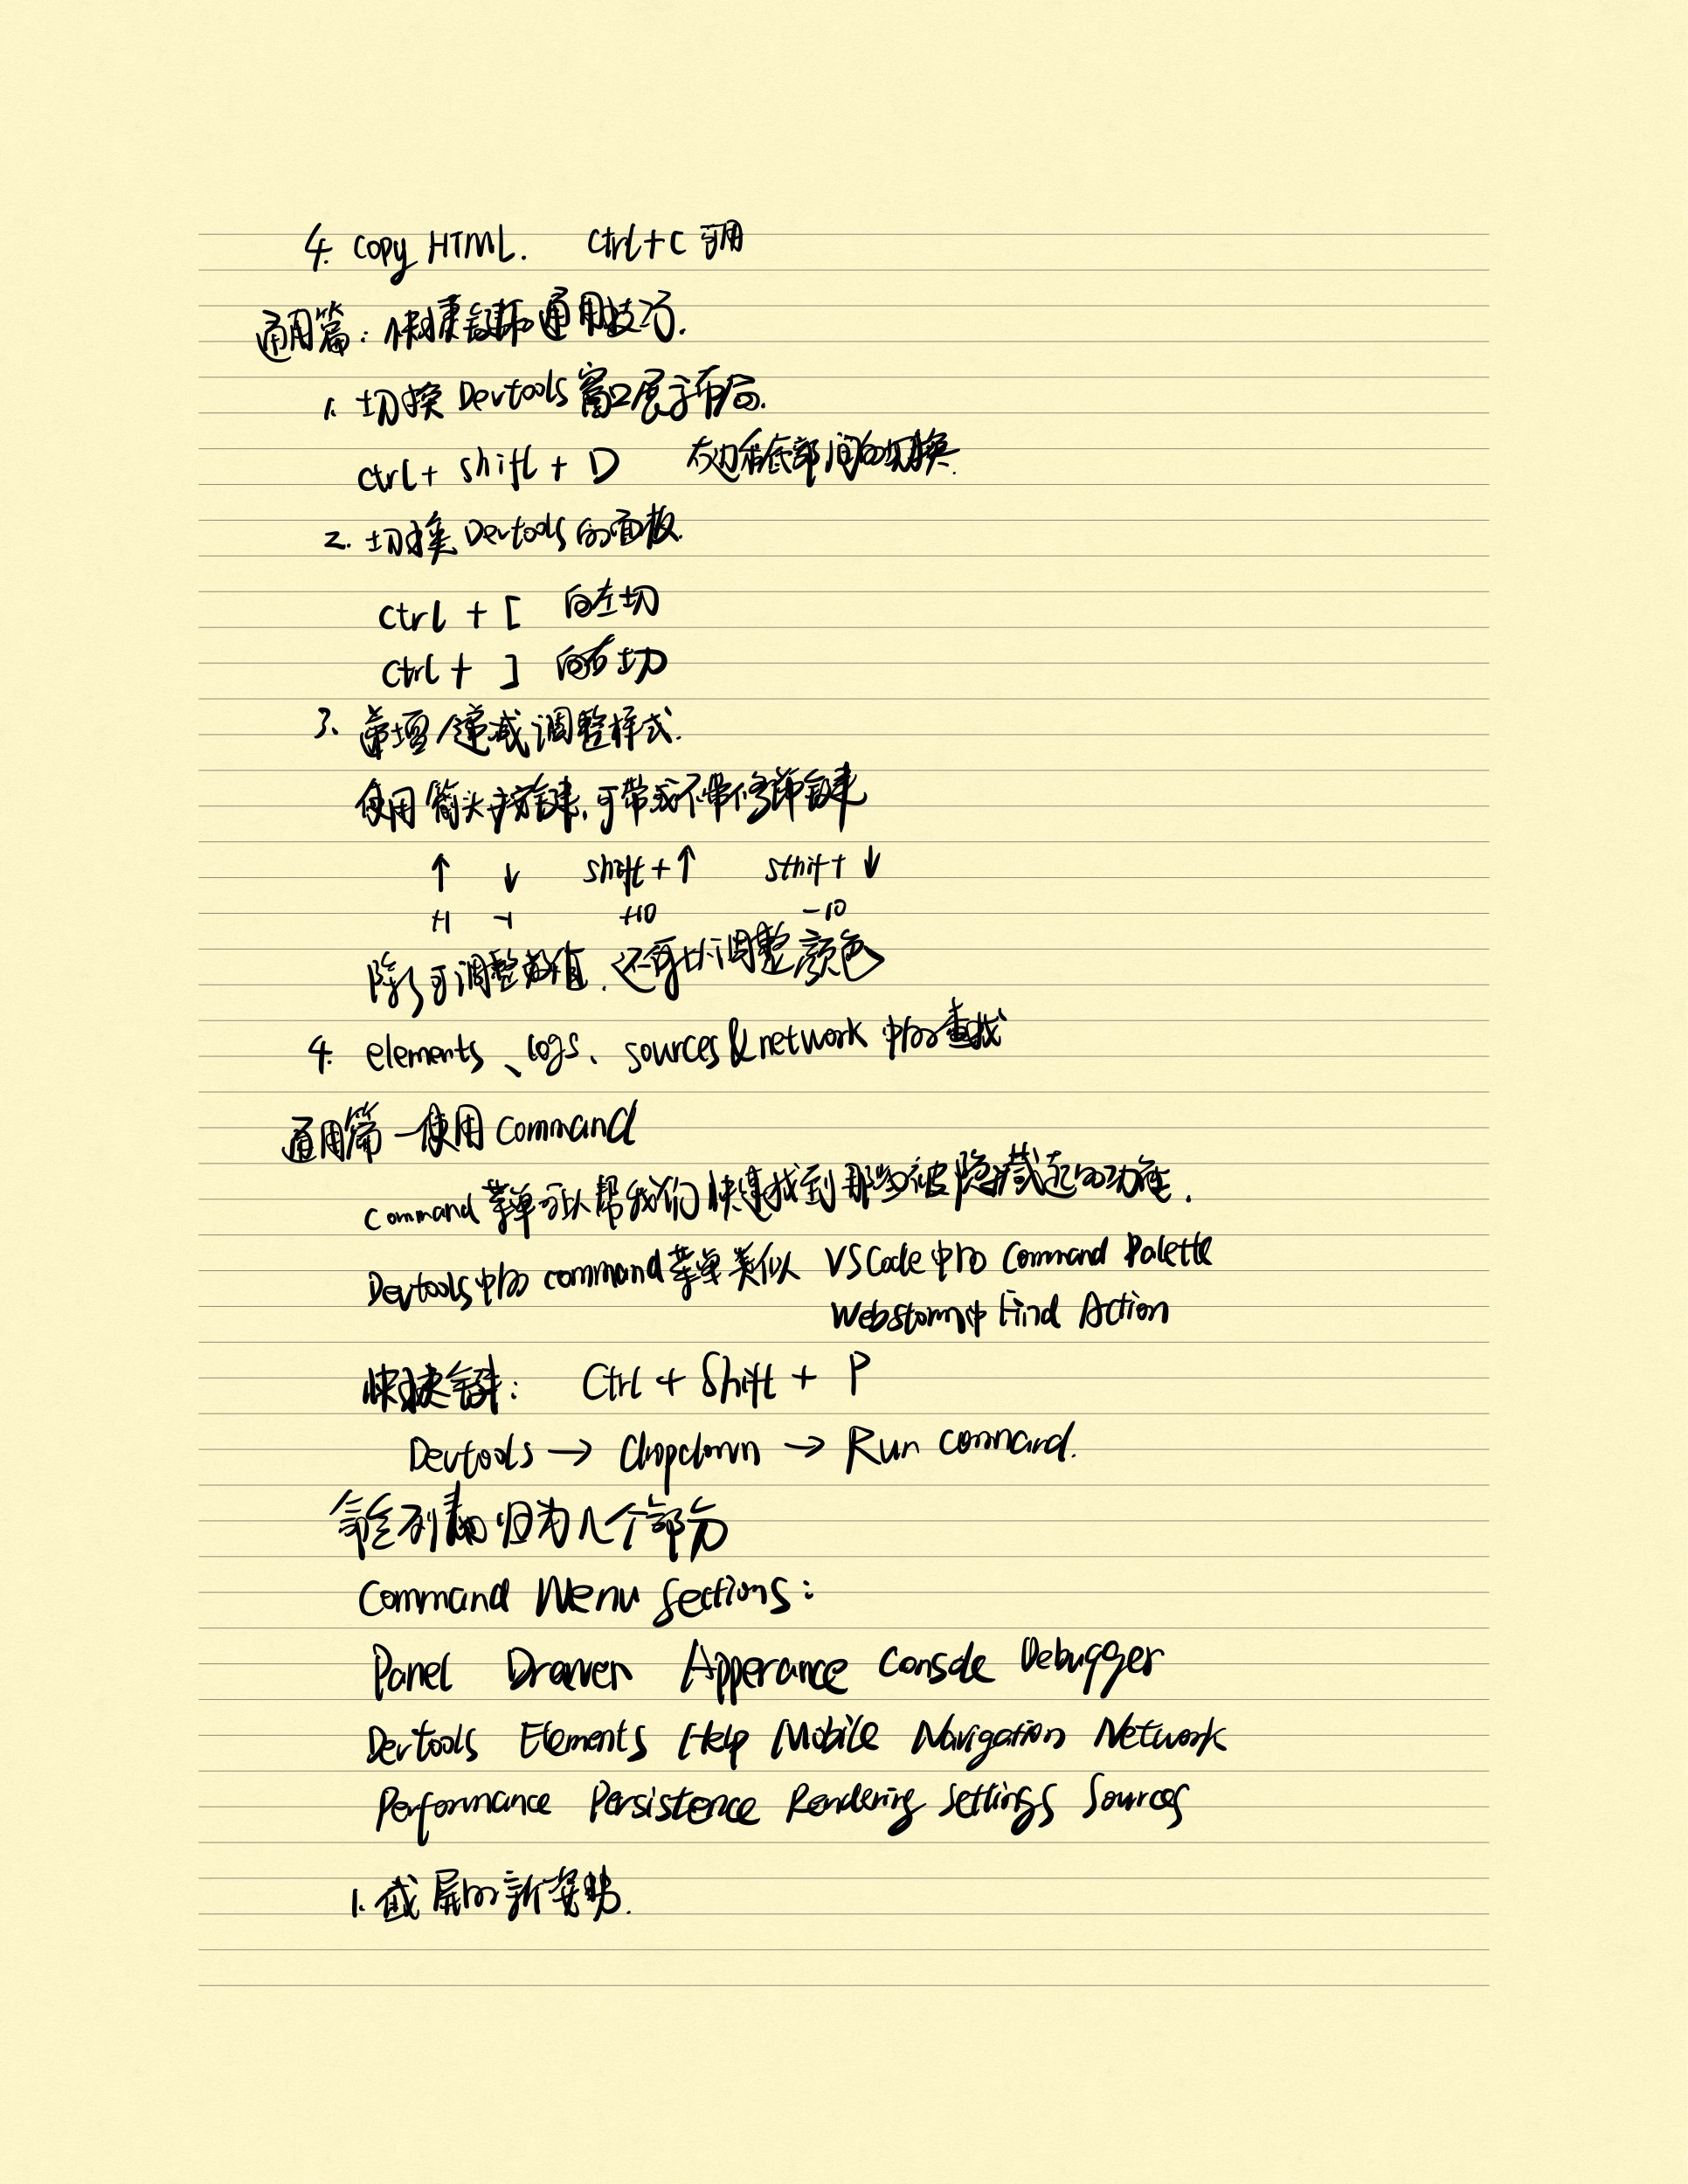 4. Copy HTML. Ctrl+C 可用
通用篇：快捷键和通用技巧.
1. 切换 Devtools 窗口展示布局.
ctrl + shift + D 右边和底部间的切换.
2. 切换 Devtools 的面板.
Ctrl + [ 向左切
Ctrl + ] 向右切
3、递增/递减调整样式.
使用箭头按键，可带或不带修饰键
↑ ↓ shift + ↑ sthift ↓
+1 -1 +10 -10
除了可调整数值，还可以调整颜色
4. elements、logs、sources & network 中的查找
通用篇 — 使用 Command
Command 菜单可以帮我们快速找到那些被隐藏起的功能.
Devtools 中的 command 菜单类似 VSCode 中的 Command Palette
Webstorm中 Find Action
快捷键： Ctrl + Shift + P
Devtools → Dropdown → Run command.
命令列表 归为几个部分
Command Menu Sections:
Panel Drawer Apperance Console Debugger
Devtools Elements Help Mobile Navigation Network
Performance Persistence Rendering Settings Sources
1. 截屏的新姿势.